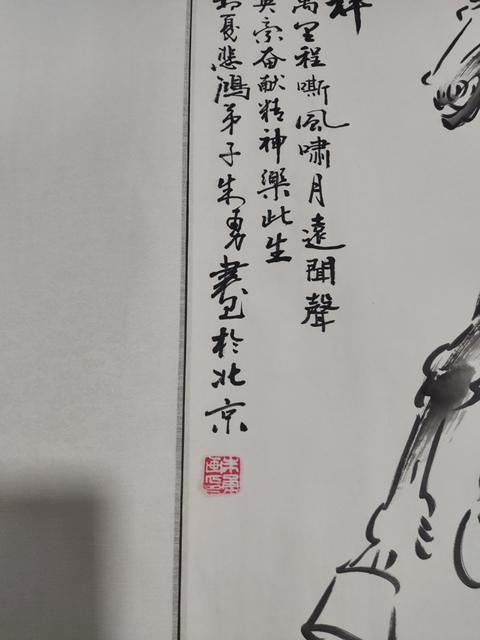 祥
萬里程嘶風嘯月遠聞聲
英豪奋献精神樂此生
夏悲鴻弟子朱勇畫於北京
朱勇
画印